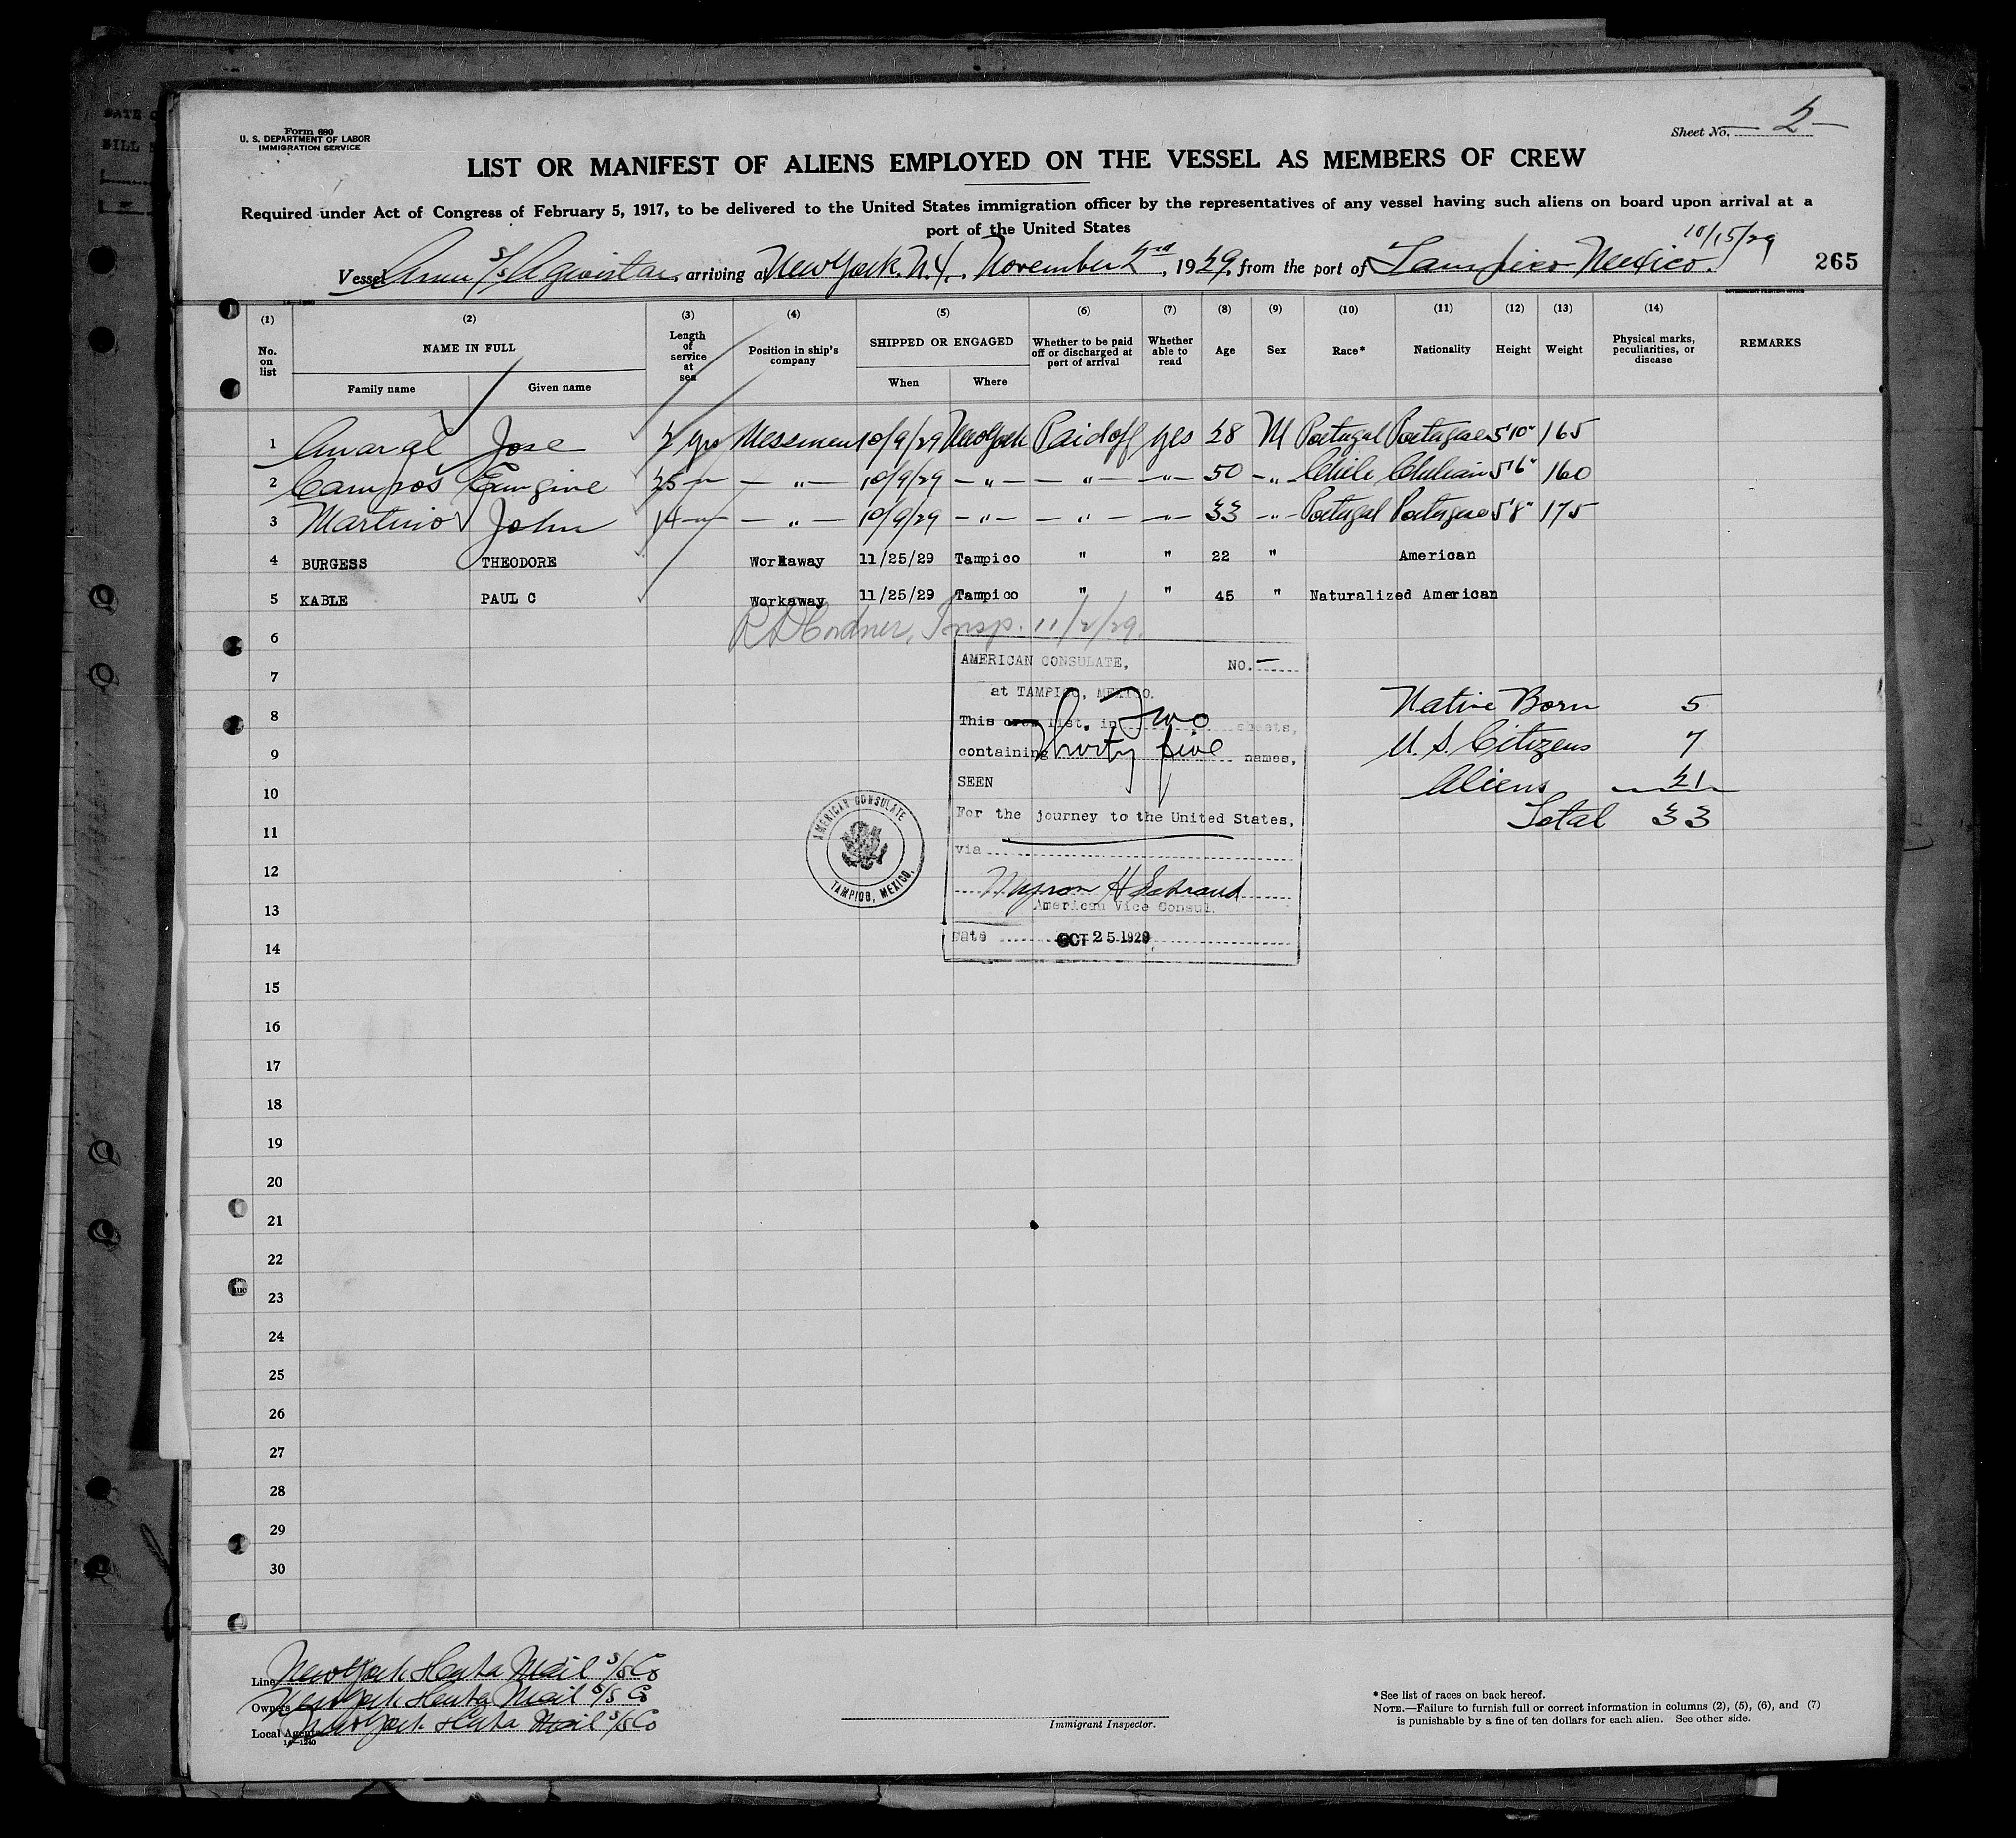 DATE O
BILL
Form 680
U. S. DEPARTMENT OF LABOR
IMMIGRATION SERVICE
Sheet No. 2
LIST OR MANIFEST OF ALIENS EMPLOYED ON THE VESSEL AS MEMBERS OF CREW
Required under Act of Congress of February 5, 1917, to be delivered to the United States immigration officer by the representatives of any vessel having such aliens on board upon arrival at a
port of the United States
10/15/29
Vessel Amer S/S Agwistar, arriving at New York. N.Y., November 2nd, 1929, from the port of Tampico Mexico.
265
(1) (2) (3) (4) (5) (6) (7) (8) (9) (10) (11) (12) (13) (14)
No. on list NAME IN FULL Length of service at sea Position in ship's company SHIPPED OR ENGAGED Whether to be paid off or discharged at port of arrival Whether able to read Age Sex Race* Nationality Height Weight Physical marks, peculiarities, or disease REMARKS
Family name Given name When Where
1 Amaral Jose 2 yrs Messmen 10/9/29 New York Paid off yes 28 M Portugal Portuguese 5'10" 165
2 Campos Eugine 25 " " 10/9/29 " " " 50 " Chile Chilean 5'6" 160
3 Martino John 14 " " 10/9/29 " " " 33 " Portugal Portuguese 5'8" 175
4 BURGESS THEODORE Workaway 11/25/29 Tampico " " 22 " American
5 KABLE PAUL C Workaway 11/25/29 Tampico " " 45 " Naturalized American
6 Insp. 11/2/29.
AMERICAN CONSULATE, NO. —
7
at TAMPICO, MEXICO.
Native Born 5
8
This crew list, in Two sheets,
U. S. Citizens 7
9
containing thirty five names,
SEEN
Aliens 21
10
For the journey to the United States,
Total 33
11
via
12
Myron H Schraud
American Vice Consul.
13
Date OCT 25 1929
14
AMERICAN CONSULATE
TAMPICO, MEXICO.
15
16
17
18
19
20
21
22
23
24
25
26
27
28
29
30
Line New York & Cuba Mail S/S Co
Owners New York & Cuba Mail S/S Co
Local Agents New York & Cuba Mail S/S Co
16—1240
Immigrant Inspector.
*See list of races on back hereof.
NOTE.—Failure to furnish full or correct information in columns (2), (5), (6), and (7)
is punishable by a fine of ten dollars for each alien. See other side.